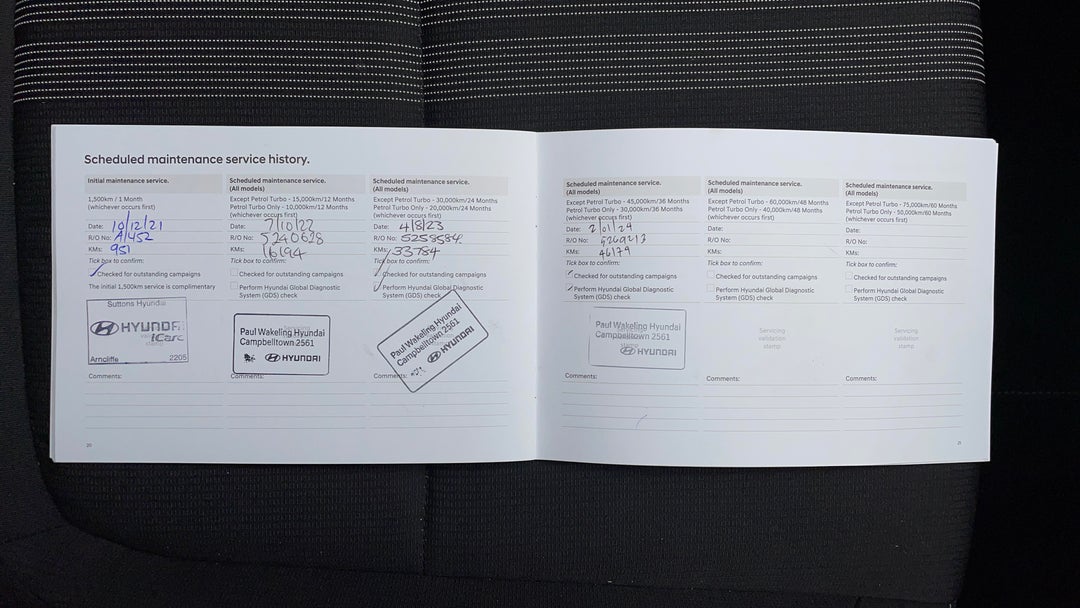 Scheduled maintenance service history.
Initial maintenance service.
1,500km / 1 Month
(whichever occurs first)
Date: 10/12/21
R/O No: A1452
KMs: 951
Tick box to confirm:
Checked for outstanding campaigns
The initial 1,500km service is complimentary
Suttons Hyundai
HYUNDAI
iCare
Arncliffe 2205
Comments:
20
Scheduled maintenance service.
(All models)
Except Petrol Turbo - 15,000km/12 Months
Petrol Turbo Only - 10,000km/12 Months
(whichever occurs first)
Date: 7/10/22
R/O No: 5240628
KMs: 16194
Tick box to confirm:
Checked for outstanding campaigns
Perform Hyundai Global Diagnostic
System (GDS) check
Paul Wakeling Hyundai
Campbelltown 2561
HYUNDAI
Comments:
Scheduled maintenance service.
(All models)
Except Petrol Turbo - 30,000km/24 Months
Petrol Turbo Only - 20,000km/24 Months
(whichever occurs first)
Date: 4/8/23
R/O No: 5259584
KMs: 33784
Tick box to confirm:
Checked for outstanding campaigns
Perform Hyundai Global Diagnostic
System (GDS) check
Paul Wakeling Hyundai
Campbelltown 2561
HYUNDAI
Comments:
Scheduled maintenance service.
(All models)
Except Petrol Turbo - 45,000km/36 Months
Petrol Turbo Only - 30,000km/36 Months
(whichever occurs first)
Date: 2/01/24
R/O No: 5269213
KMs: 46179
Tick box to confirm:
Checked for outstanding campaigns
Perform Hyundai Global Diagnostic
System (GDS) check
Paul Wakeling Hyundai
Campbelltown 2561
HYUNDAI
Comments:
Scheduled maintenance service.
(All models)
Except Petrol Turbo - 60,000km/48 Months
Petrol Turbo Only - 40,000km/48 Months
(whichever occurs first)
Date:
R/O No:
KMs:
Tick box to confirm:
Checked for outstanding campaigns
Perform Hyundai Global Diagnostic
System (GDS) check
Servicing
validation
stamp
Comments:
Scheduled maintenance service.
(All models)
Except Petrol Turbo - 75,000km/60 Months
Petrol Turbo Only - 50,000km/60 Months
(whichever occurs first)
Date:
R/O No:
KMs:
Tick box to confirm:
Checked for outstanding campaigns
Perform Hyundai Global Diagnostic
System (GDS) check
Servicing
validation
stamp
Comments:
21